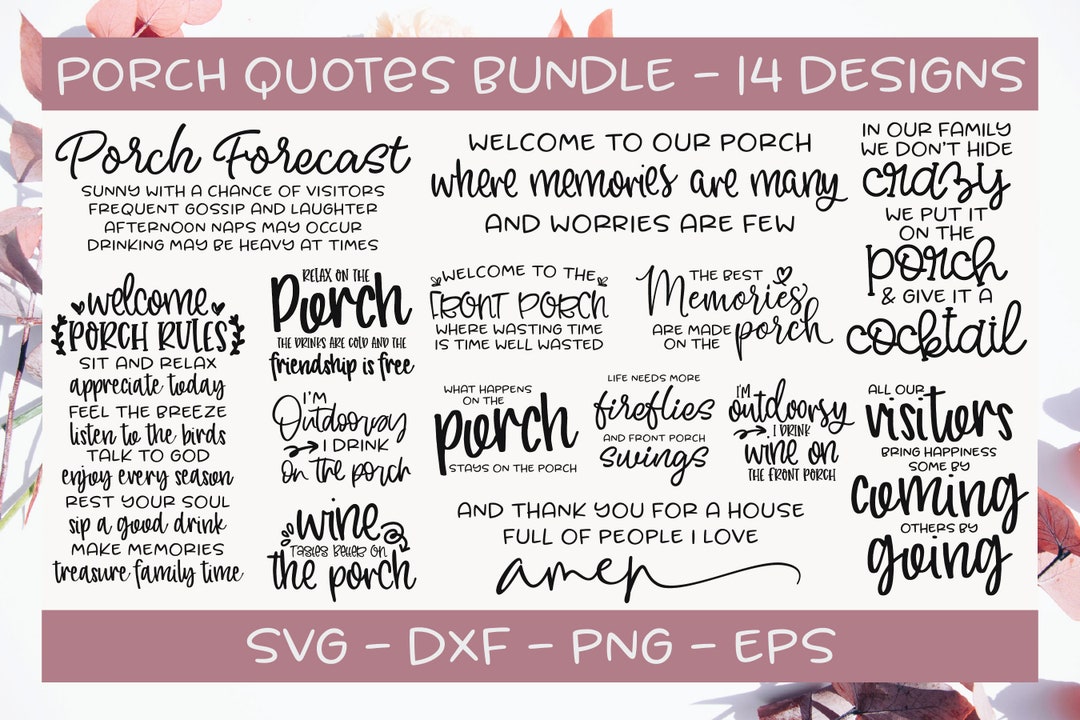 PORCH QUOTES BUNDLE - 14 DESIGNS
Porch Forecast
SUNNY WITH A CHANCE OF VISITORS
FREQUENT GOSSIP AND LAUGHTER
AFTERNOON NAPS MAY OCCUR
DRINKING MAY BE HEAVY AT TIMES
WELCOME TO OUR PORCH
where memories are many
AND WORRIES ARE FEW
IN OUR FAMILY
WE DON'T HIDE
crazy
WE PUT IT
ON THE
porch
& GIVE IT A
cocktail
welcome
PORCH RULES
SIT AND RELAX
appreciate today
FEEL THE BREEZE
listen to the birds
TALK TO GOD
enjoy every season
REST YOUR SOUL
sip a good drink
MAKE MEMORIES
treasure family time
RELAX ON THE
Porch
THE DRINKS ARE COLD AND THE
friendship is free
WELCOME TO THE
FRONT PORCH
WHERE WASTING TIME
IS TIME WELL WASTED
THE BEST
Memories
ARE MADE
ON THE porch
I'M
Outdoorsy
I DRINK
on the porch
WHAT HAPPENS
ON THE
porch
STAYS ON THE PORCH
LIFE NEEDS MORE
fireflies
AND FRONT PORCH
swings
I'M
outdoorsy
I DRINK
wine on
THE FRONT PORCH
ALL OUR
visitors
BRING HAPPINESS
SOME BY
coming
OTHERS BY
going
wine
TASTES BETTER ON
the porch
AND THANK YOU FOR A HOUSE
FULL OF PEOPLE I LOVE
amen
SVG - DXF - PNG - EPS